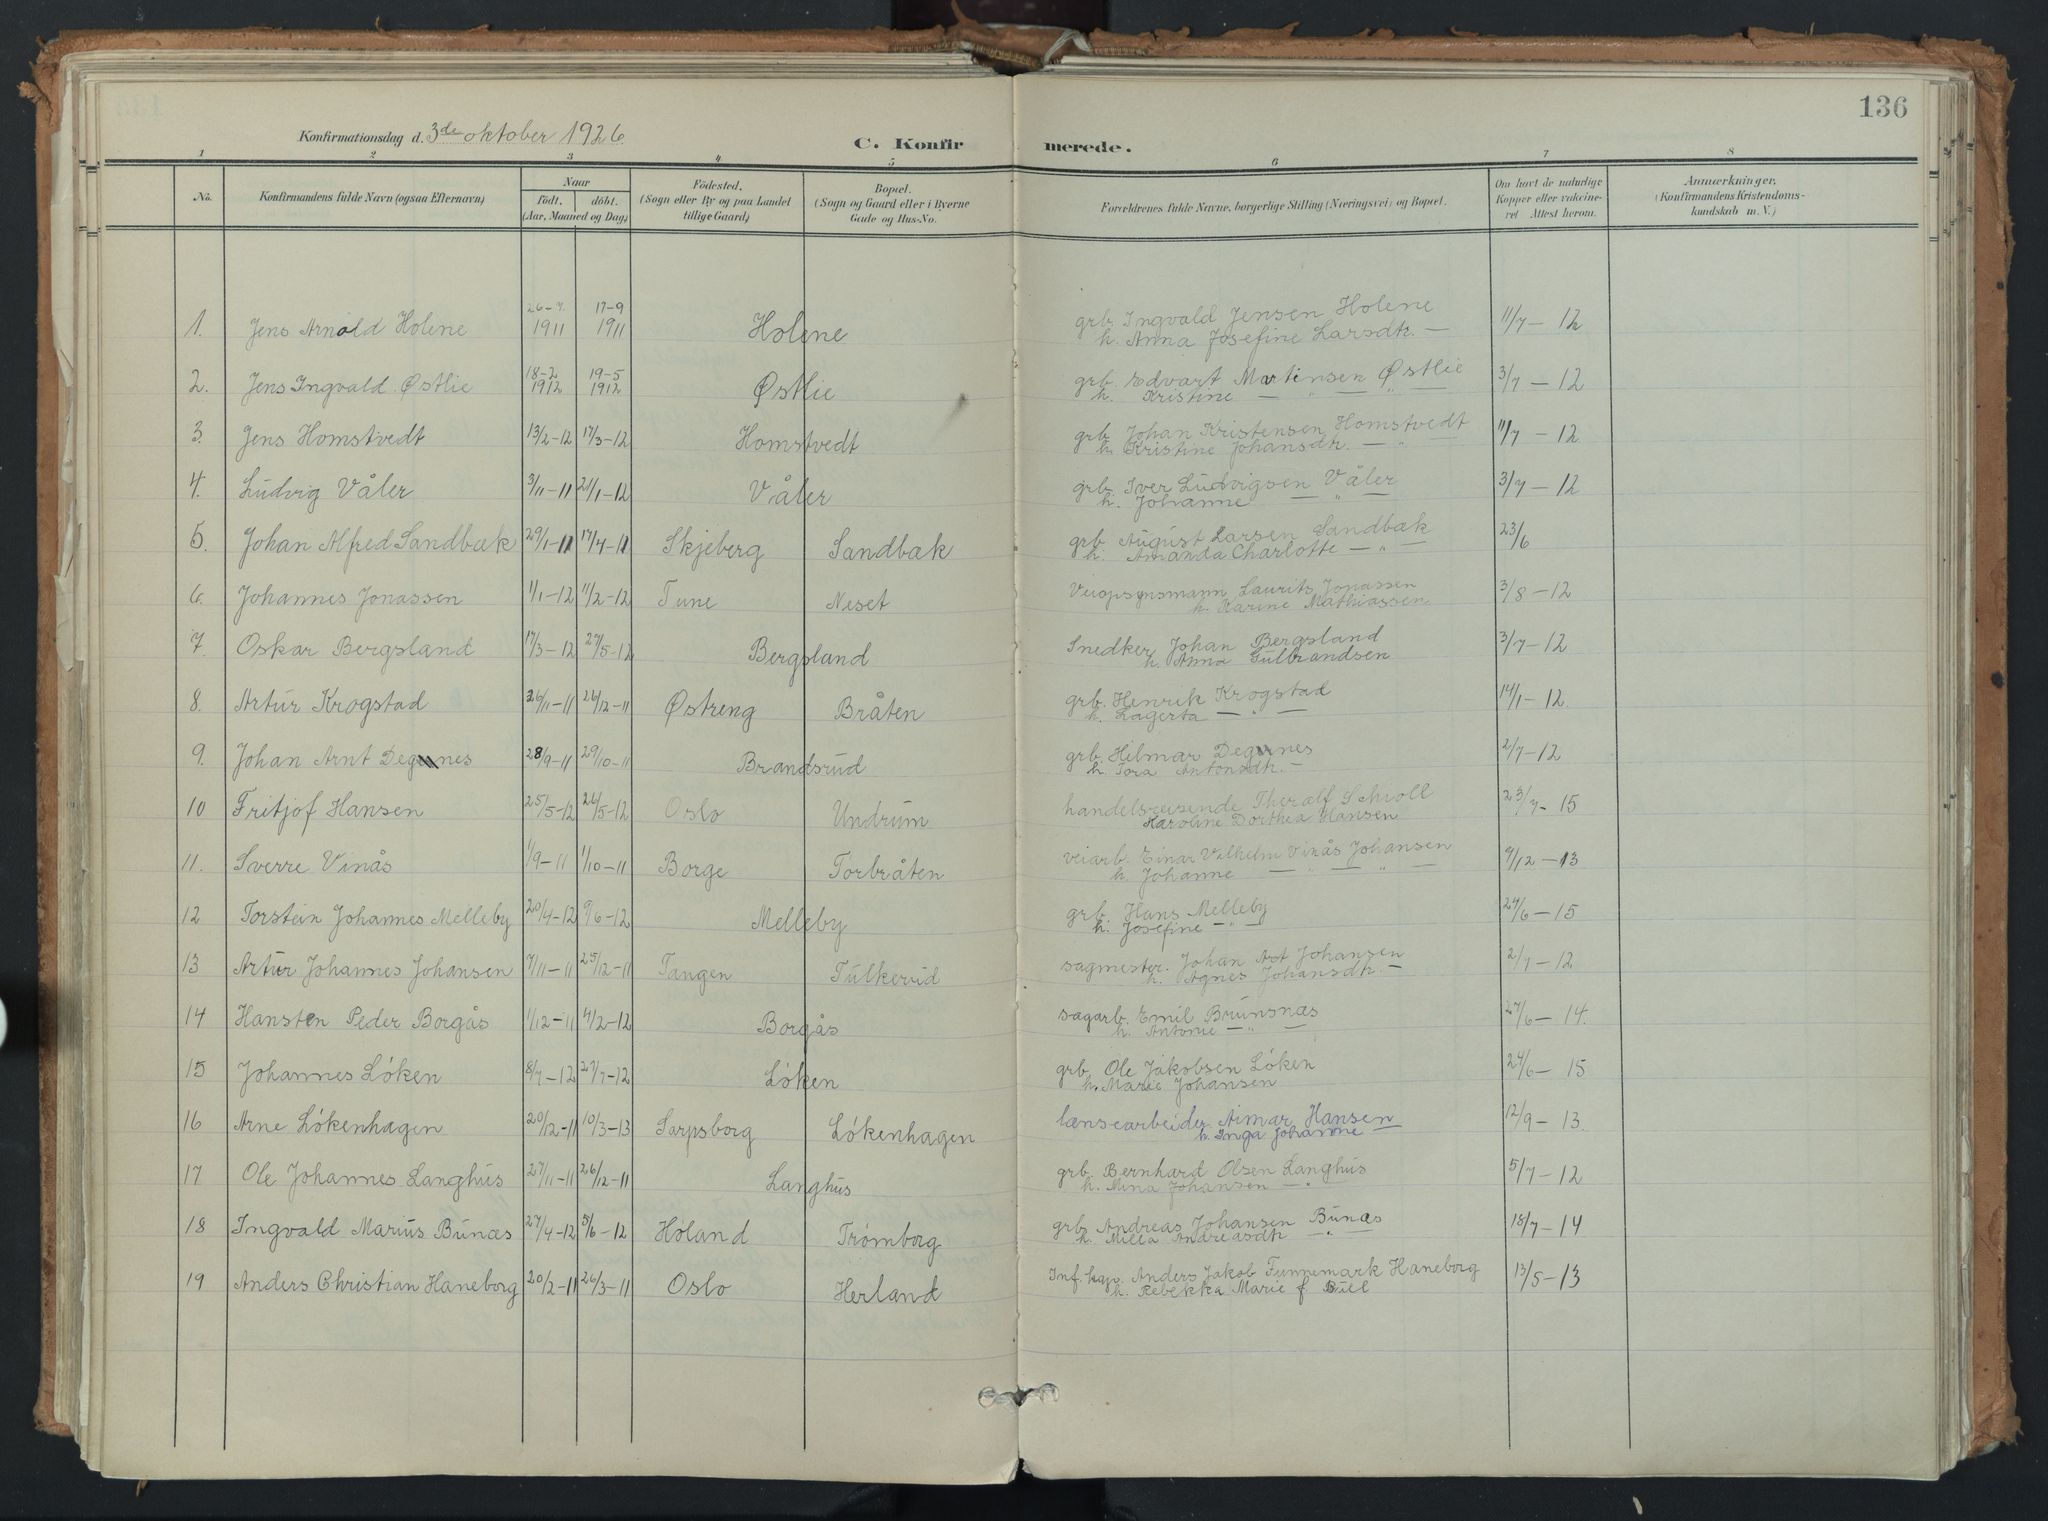 136
Konfirmationsdag d. 3de oktober 1926.
C. Konfirmerede.
1 2 3 4 5 6 7 8
No. Konfirmandens fulde Navn (ogsaa Efternavn) Naar Födt. döbt. (Aar, Maaned og Dag) Födested. (Sogn eller By og paa Landet tillige Gaard) Bopæl. (Sogn og Gaard eller i Byerne Gade og Hus-No. Forældrenes fulde Navne, borgerlige Stilling (Næringsvei) og Bopæl. Om havt de naturlige Kopper eller vakcineret Attest herom. Anmærkninger. (Konfirmandens Kristendomskundskab m. V.)
1. Jens Arnold Holene 1911 17-9 1911 Holene grb. Ingvald Jensen Holene 11/7 - 12
h. Anna Josefine Larsdtr. —
2. Jens Ingvald Østlie 18-2 1912 19-5 1912 Østlie grb. Edvart Martinsen Østlie 3/7 - 12
h. Kristine — " —
3. Jens Homstvedt 13/2-12 17/3-12 Homstvedt grb. Johan Kristensen Homstvedt 11/7 - 12
h. Kristine Johansdtr. — "
4. Ludvig Våler 3/11-11 21/1-12 Våler grb. Iver Ludvigsen Våler 3/7 - 12
h. Johanne — " —
5. Johan Alfred Sandbæk 29/1-11 17/4-11 Skjeberg Sandbæk grb. August Larsen Sandbæk 23/6
h. Amanda Charlotte — "
6. Johannes Jonassen 1/1-12 11/2-12 Tune Neset Veiopsynsmann Laurits Jonassen 3/8 - 12
h. Karine Mathiassen
7. Oskar Bergsland 17/3-12 27/5-12 Bergsland Snedker Johan Bergsland 3/7-12
h. Anna Gulbrandsen
8. Artur Krogstad 26/11-11 26/12-11 Østreng Bråten grb. Henrik Krogstad 14/1-12.
h. Lagerta — " —
9. Johan Arnt Degnes 28/9-11 29/10-11 Brandsrud grb. Hilmar Degnes 2/7-12
h. Tora Antonsdtr. —
10 Fritjof Hansen 25/5-12 26/5-12 Oslo Undrum handelsreisende Theralf Schioll 23/7-15
Karoline Dorthea Hansen
11. Sverre Vinås 1/9-11 1/10-11 Borge Torbråten veiarb. Einar Vilhelm Vinås Johansen 9/12-13
h. Johanne — " — "
12 Torstein Johannes Melleby 20/4-12 9/6-12 Melleby grb. Hans Melleby 24/6-15
h. Josefine — " —
13 Artur Johannes Johansen 7/11-11 25/12-11 Tangen Tulkerud sagmester. Johan Ast Johansen 2/7-12
h. Agnes Johansdtr. —
14 Hansten Peder Borgås 1/12-11 4/2-12 Borgås sagarb. Emil Brunsnæs 27/6-14.
h. Antonie — " —
15 Johannes Løken 8/7-12 27/7-12 Løken grb. Ole Jakobsen Løken 24/6-15
h. Marie Johansen
16 Arne Løkenhagen 20/12-11 10/3-13 Sarpsborg Løkenhagen lensearbeider Aimar Hansen 12/9-13.
h. Inga Johanne
17 Ole Johannes Langhus 27/11-11 26/12-11 Langhus grb. Bernhard Olsen Langhus 5/7-12
h. Mina Johansen — "
18 Ingvald Marius Bunæs 27/4-12 5/6-12 Høland Trømborg grb. Andreas Johansen Bunæs 18/7-14
h. Milla Andreasdtr — " —
19 Anders Christian Haneborg 20/2-11 26/3-11 Oslo Herland Inf. kap. Anders Jakob Funnemark Haneborg 13/5-13
h. Rebekka Marie f. Bull